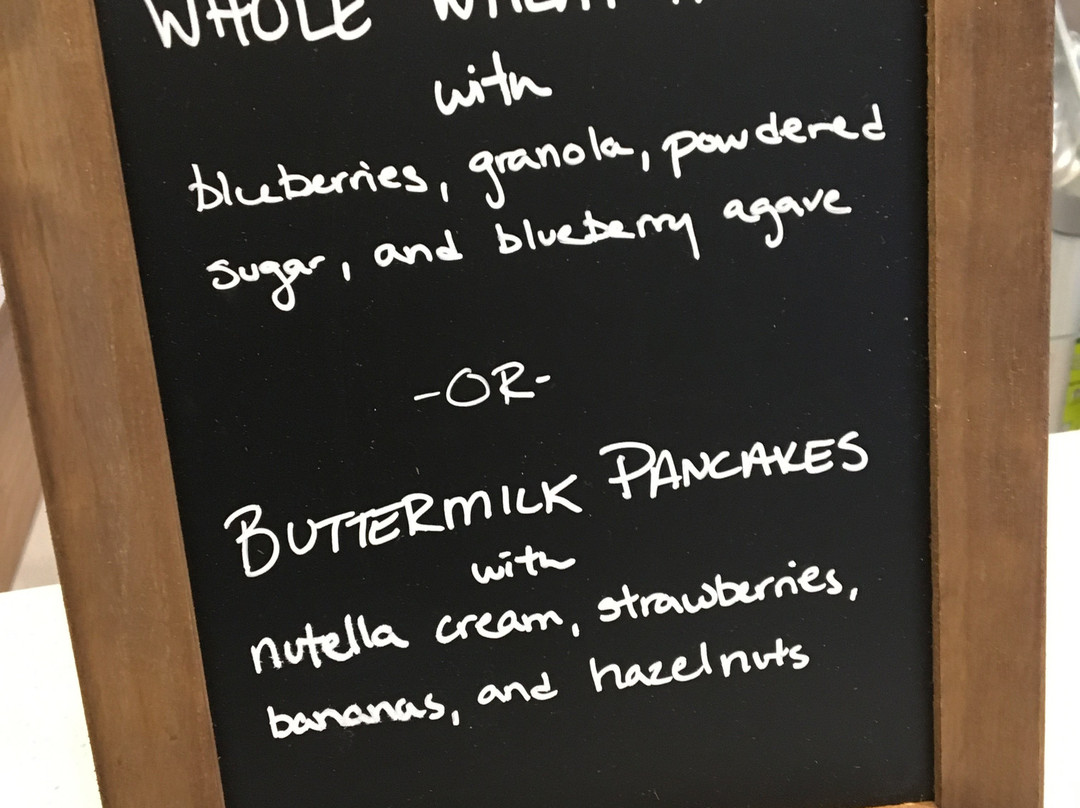 WHOLE WHEAT
with
blueberries, granola, powdered
sugar, and blueberry agave
-OR-
BUTTERMILK PANCAKES
with
nutella cream, strawberries,
bananas, and hazelnuts